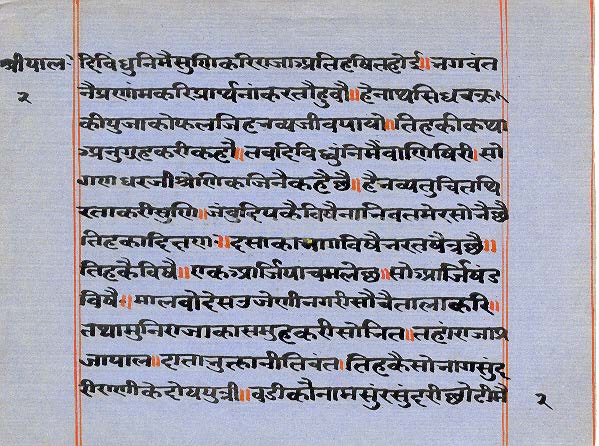 श्रीपाल
२
दिविंधुनिमैसुणिकरिराजाप्रतिहर्षितहोई॥नगवंत
नैप्रणांमकरिप्रार्थनांकरतौहुवौ॥हेनाथसिधचक्र
कीपुजाकोफलजिहनव्यजीवपायो॥तिहकीकथा
अनुगृहकरीकहौ॥सवदिविधुंनिमैवाणिषिरी॥सो
गणधरजीश्रेणिकजिनैकहैछै॥हैनव्यतुचितथि
रताकरीसुणि॥जंवुदिपकैविषैनानिवतमेरसोनैछै
तिहका॥दसाकानागविषैनरतषैत्रछै॥
तिहकैविषै॥एकआर्जिषाचमलेछ॥सोआर्जिषंड
विषै॥मालवोदेसउजेणीनगरीसौवैतालाकरि॥
तथामुनिराजाकासमुहकरीसोनित॥तहांराजाप्र
जापाल॥दातानुक्तानीतिवंत॥तिहकैसोनागसुंद
रीराणीकेदोयपुत्री॥वडीकौनामसुंरसुंदरीछोटीमै
२